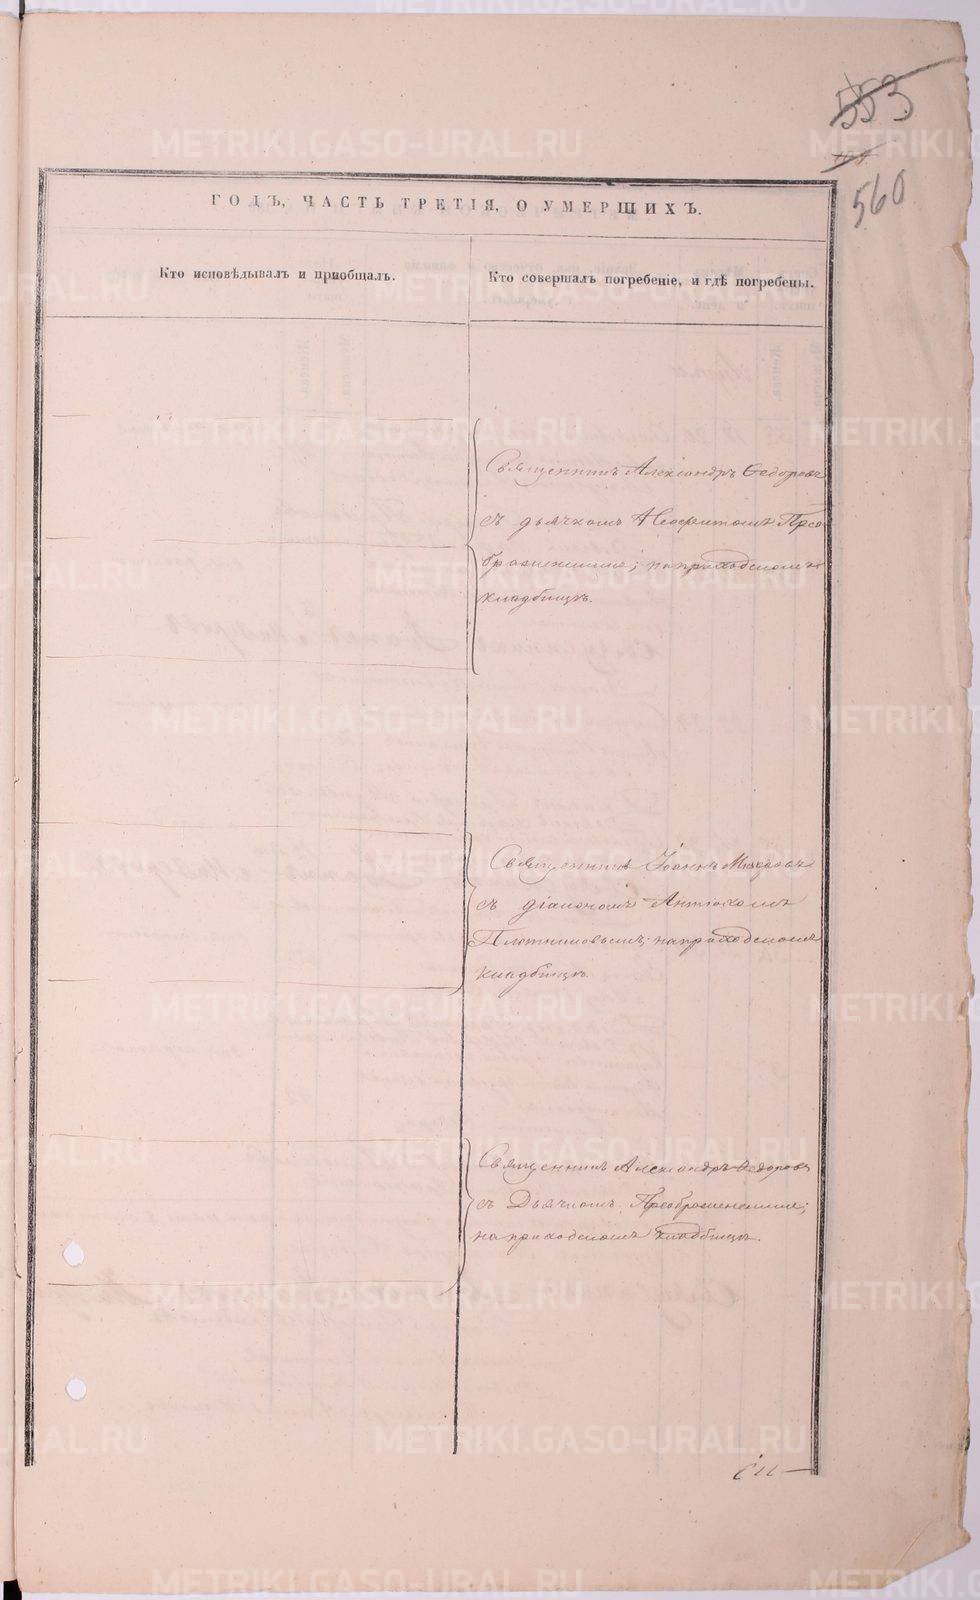 553
560
ГОДЪ, ЧАСТЬ ТРЕТІЯ, О УМЕРШИХЪ.
Кто исповѣдывалъ и пріобщалъ.
Кто совершалъ погребеніе, и гдѣ погребены.
Священникъ Александръ Ѳедоровъ
съ дьячкомъ Неофитомъ Прео
браженскимъ; на приходскомъ
кладбищѣ.
Священникъ Іоаннъ Макаровъ
съ діакономъ Антіохомъ
Плотниковымъ; на приходскомъ
кладбищѣ.
Священникъ Александръ Ѳедоровъ
съ Дьячкомъ Преображенскимъ;
на приходскомъ кладбищѣ.
METRIKI.GASO-URAL.RU